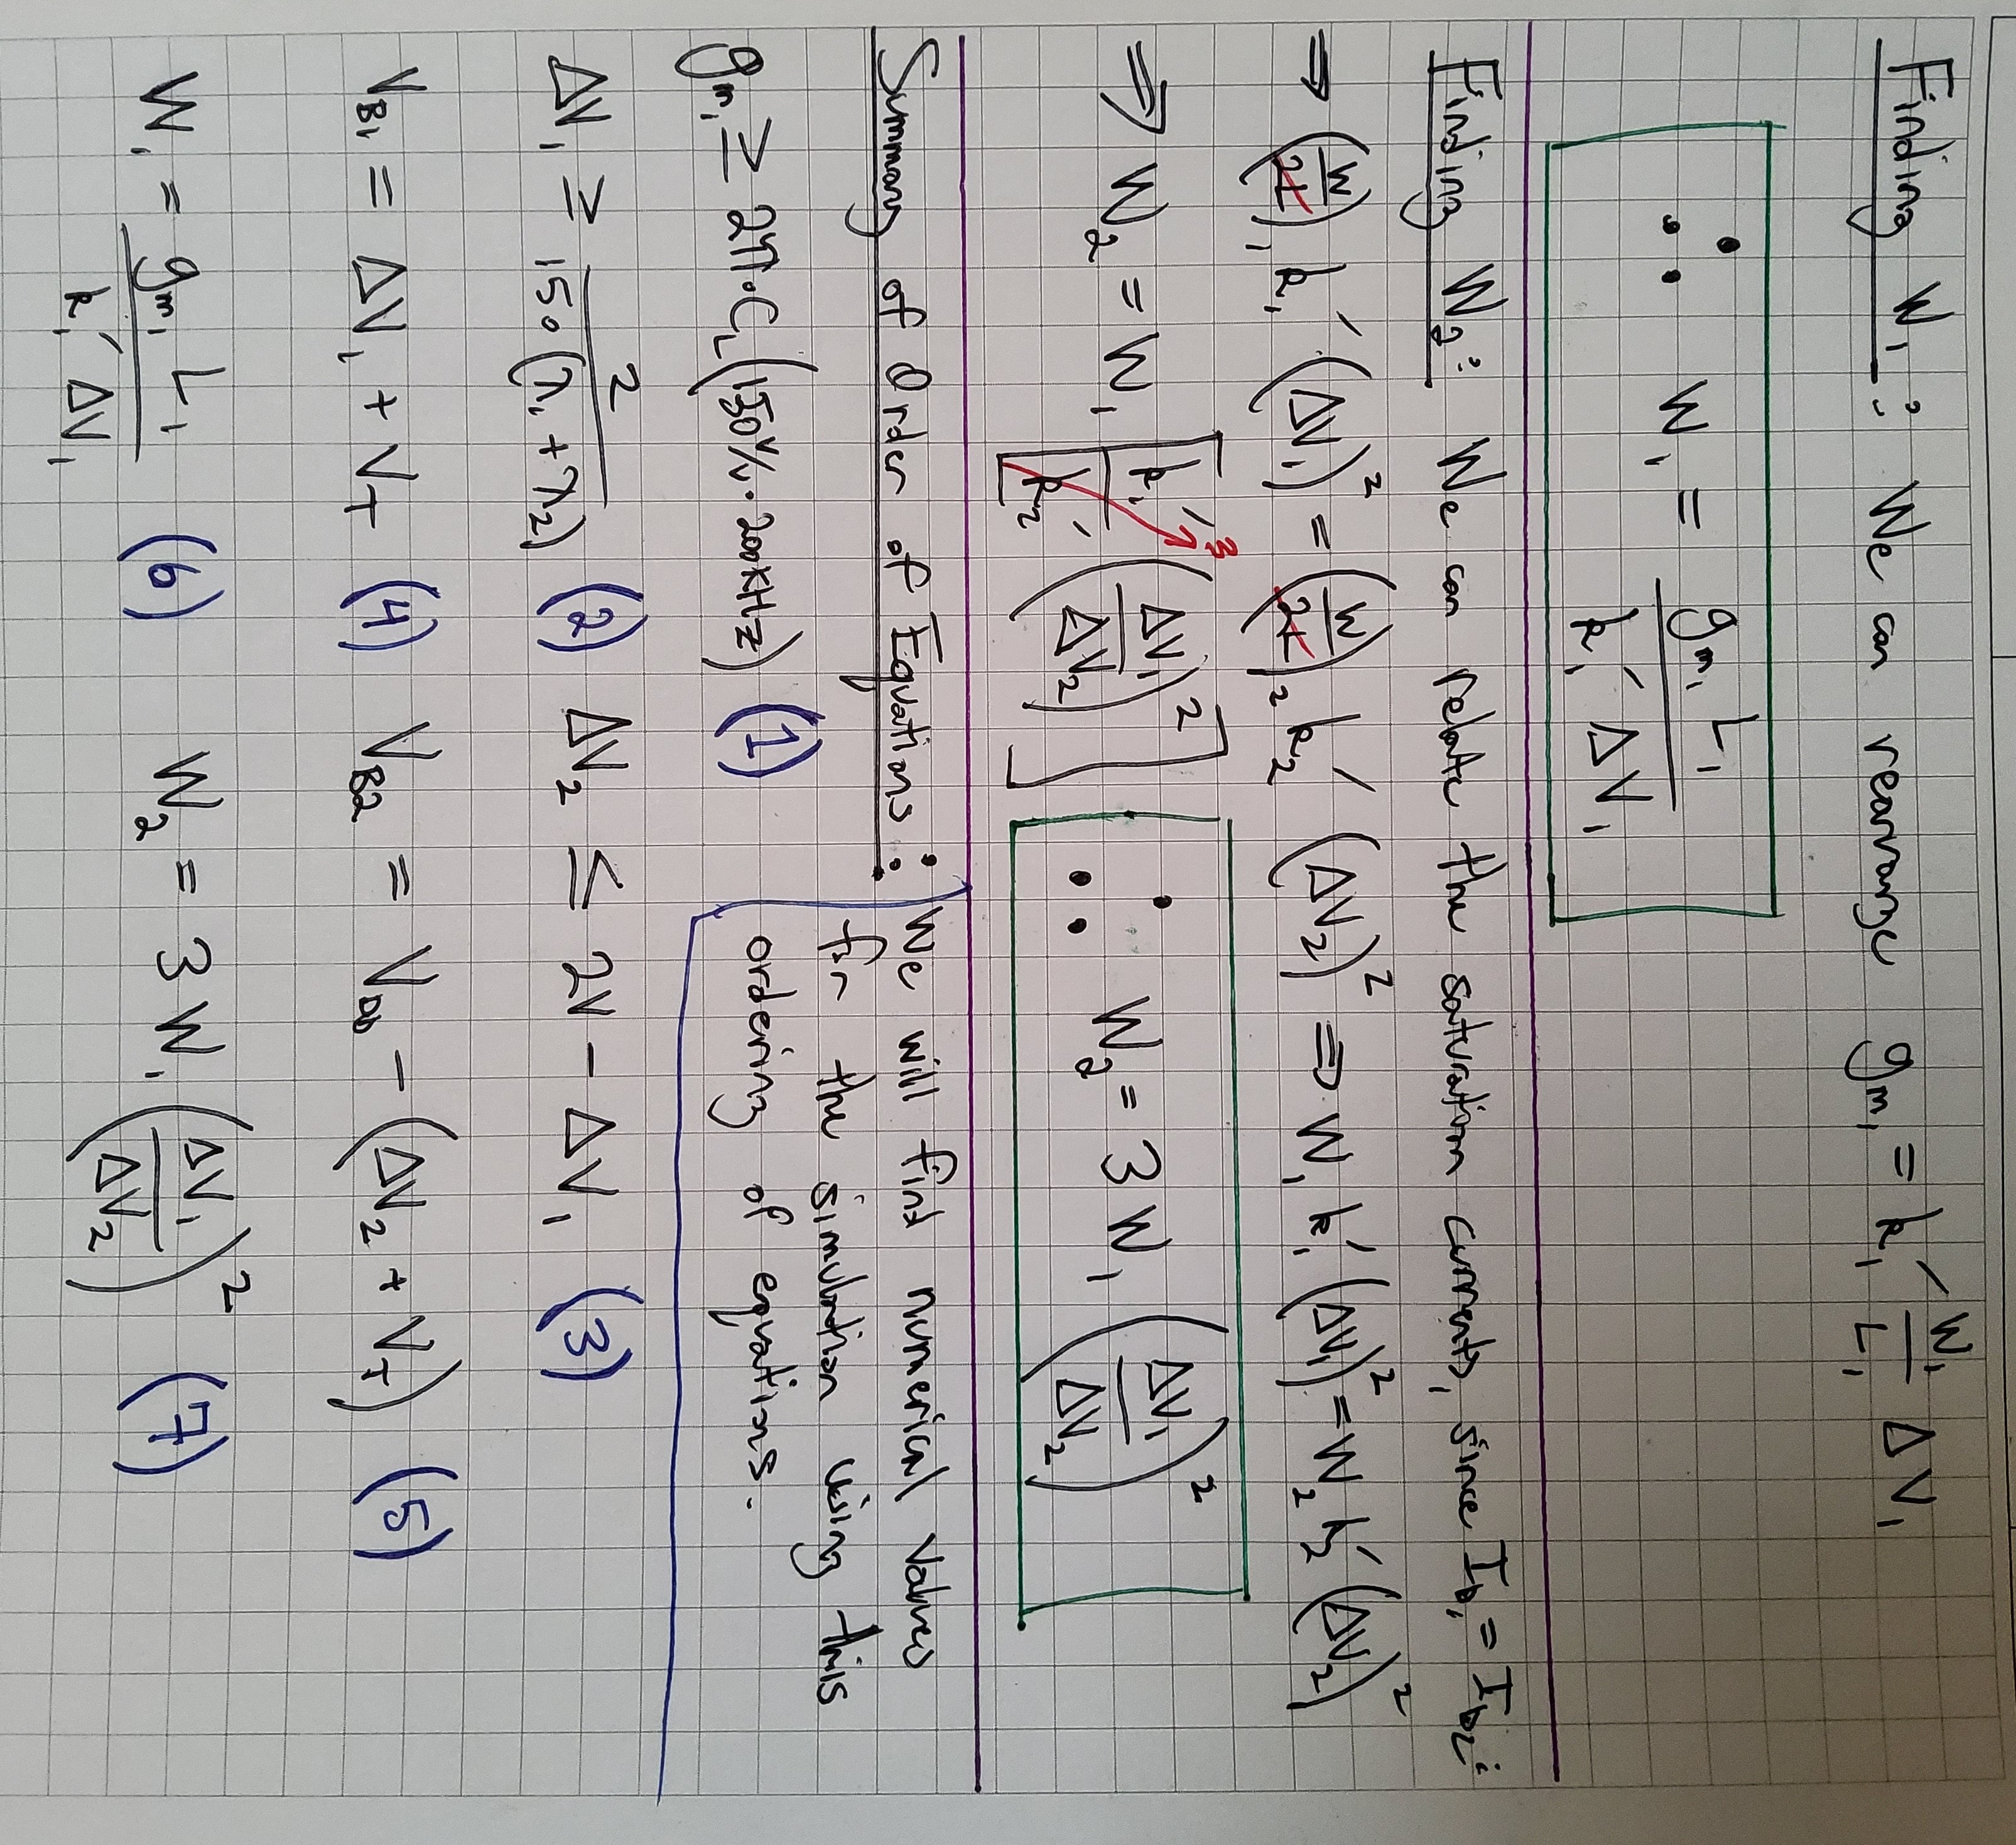 Finding W₁: We can rearrange gm₁ = k₁′ W₁/L₁ ΔV₁
∴ W₁ = gm₁ L₁ / k₁′ ΔV₁
Finding W₂: We can relate the saturation currents, since I_D₁ = I_D₂:
⇒ (W/2L)₁ k₁′ (ΔV₁)² = (W/2L)₂ k₂′ (ΔV₂)² ⇒ W₁ k₁′ (ΔV₁)² = W₂ k₂′ (ΔV₂)²
⇒ W₂ = W₁ [k₁′/k₂′ (ΔV₁/ΔV₂)²] 3 ∴ W₂ = 3 W₁ (ΔV₁/ΔV₂)²
Summary of Order of Equations:
We will find numerical values
for the simulation using this
ordering of equations.
gm₁ ≥ 2π·C_L (150 V/V · 200KHz) (1)
ΔV₁ ≥ 2 / 150 (λ₁ + λ₂) (2) ΔV₂ ≤ 2V − ΔV₁ (3)
V_B1 = ΔV₁ + V_T (4) V_B2 = V_DD − (ΔV₂ + V_T) (5)
W₁ = gm₁ L₁ / k₁′ ΔV₁ (6) W₂ = 3 W₁ (ΔV₁/ΔV₂)² (7)